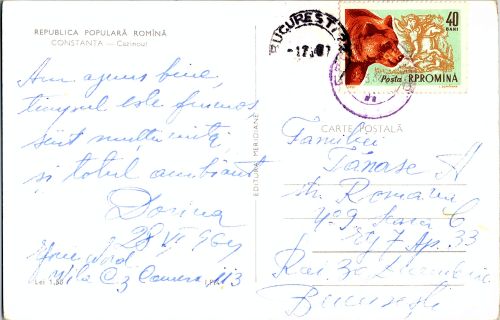 REPUBLICA POPULARĂ ROMÎNĂ
CONSTANȚA — Cazinoul
Am ajuns bine,
timpul este frumos,
sînt mulțumită
și totul
Dorina
28 VI 964
Vila C2 Camera 113
Lei 1,50
EDITURA MERIDIANE
BUCUREȘTI
40
BANI
Posta R.P.ROMINA
CARTE POȘTALĂ
Familiei
Tănase A
str. Romană
No 9 Scara C
Etj 7 Ap. 33
Rai. 30 Decembrie
București